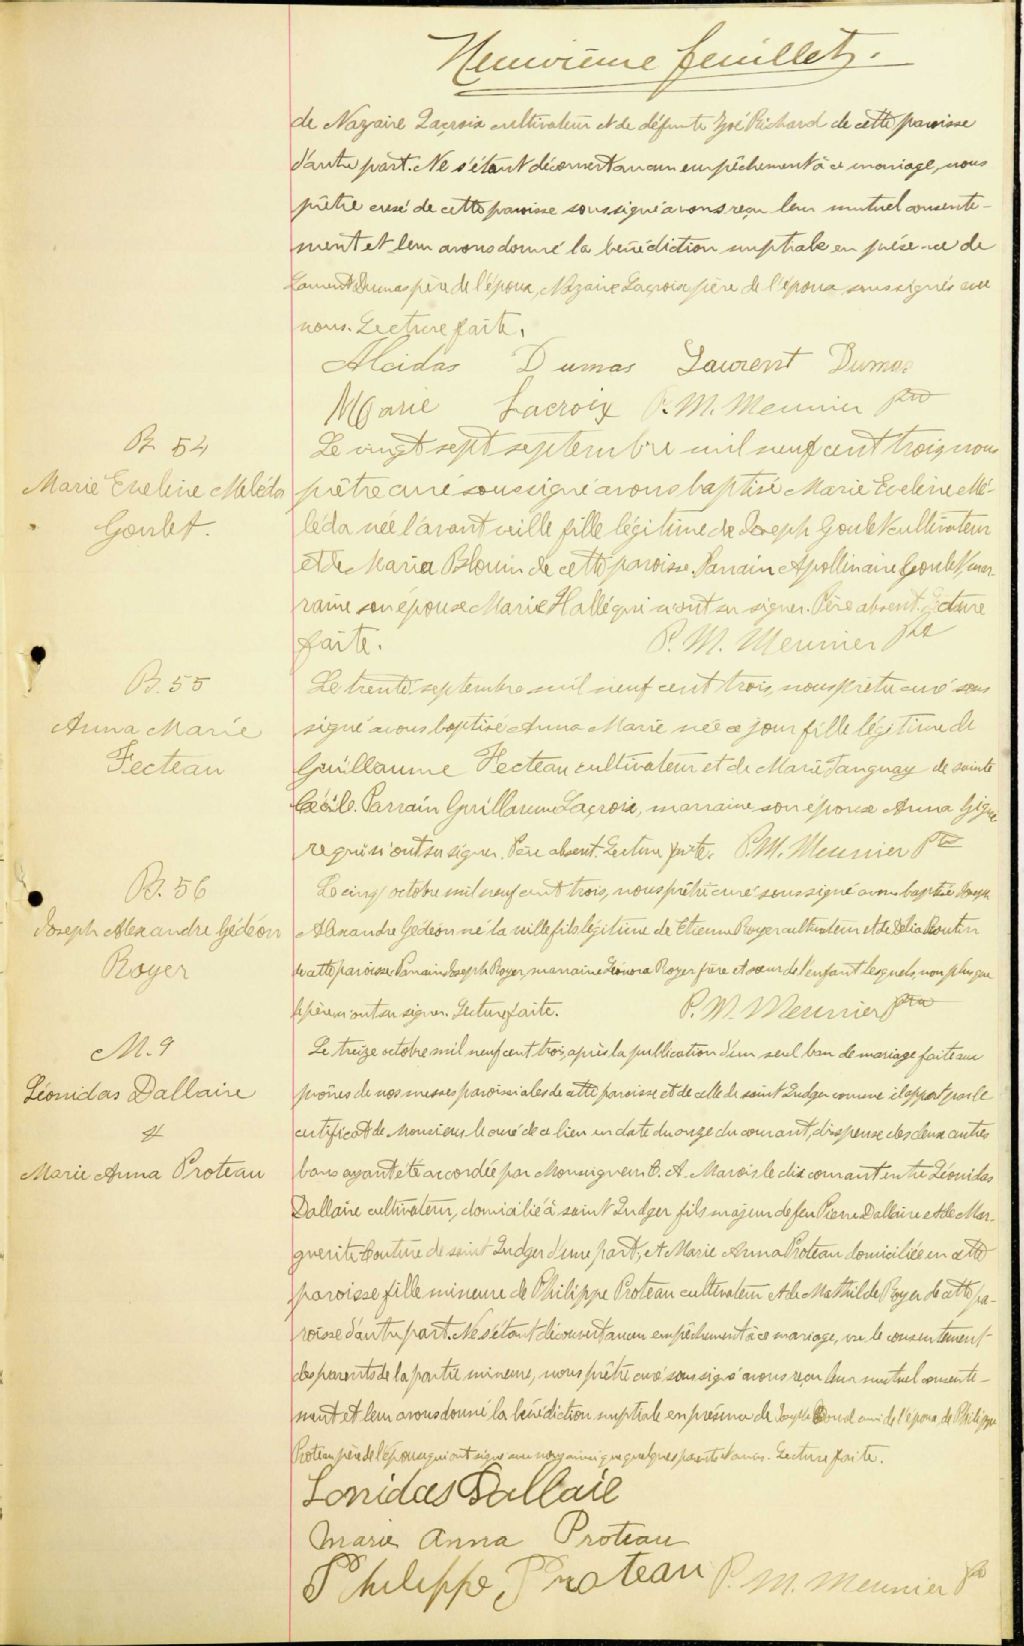 Neuvième feuillet.
de Nazaire Lacroix cultivateur et de défunte Zoé Richard de cette paroisse
d'autre part. Ne s'étant découvert aucun empêchement à ce mariage, nous
prêtre curé de cette paroisse soussigné avons reçu leur mutuel consente-
ment et leur avons donné la bénédiction nuptiale en présence de
Laurent Dumas père de l'époux, Nazaire Lacroix père de l'épouse soussignés avec
nous. Lecture faite.
Alcidas Dumas Laurent Dumas
Marie Lacroix P. M. Meunier Ptre
B. 54
Marie Eveline Méléda
Goulet.
Le vingt sept septembre mil neuf cent trois, nous
prêtre curé soussigné avons baptisé Marie Eveline Mé-
léda née l'avant veille fille légitime de Joseph Goulet cultivateur
et de Maria Blouin de cette paroisse. Parrain Apollinaire Goulet, mar-
raine son épouse Marie Hallé qui n'ont su signer. Père absent. Lecture
faite. P. M. Meunier Ptre
B. 55
Anna Marie
Fecteau
Le trente septembre mil neuf cent trois, nous prêtre curé sous
signé avons baptisé Anna Marie née ce jour fille légitime de
Guillaume Fecteau cultivateur et de Marie Tanguay de sainte
Cécile. Parrain Guillaume Lacroix, marraine son épouse Anna Giguè
re qui n'ont su signer. Père absent. Lecture faite. P. M. Meunier Ptre
B. 56
Joseph Alexandre Gédéon
Royer
Le cinq octobre mil neuf cent trois, nous prêtre curé soussigné avons baptisé Joseph
Alexandre Gédéon né la veille fils légitime de Etienne Royer cultivateur et de Délia Boutin
de cette paroisse. Parrain Joseph Royer, marraine Léonora Royer frère et soeur de l'enfant lesquels, non plus que
le père n'ont su signer. Lecture faite. P. M. Meunier Ptre
M. 9
Léonidas Dallaire
&
Marie Anna Proteau
Le treize octobre mil neuf cent trois, après la publication d'un seul ban de mariage faite aux
prônes de nos messes paroissiales de cette paroisse et de celle de saint Ludger comme il appert par le
certificat de Monsieur le curé de ce lieu en date du onze du courant, dispense des deux autres
bans ayant été accordée par Monseigneur C. A. Marois le dix courant entre Léonidas
Dallaire cultivateur, domicilié à saint Ludger fils majeur de feu Pierre Dallaire et de Mar-
guerite Couture de saint Ludger d'une part; et Marie Anna Proteau domiciliée en cette
paroisse fille mineure de Philippe Proteau cultivateur et de Mathilde Royer de cette pa-
roisse d'autre part. Ne s'étant découvert aucun empêchement à ce mariage, vu le consentement
des parents de la partie mineure, nous prêtre curé soussigné avons reçu leur mutuel consente-
ment et leur avons donné la bénédiction nuptiale en présence de Joseph ami de l'époux, de Philippe
Proteau père de l'épouse qui ont signé avec nous ainsi que quelques parents et amis. Lecture faite.
Lonidas Dallaie
Marie Anna Proteau
Philippe Proteau P. M. Meunier Ptre